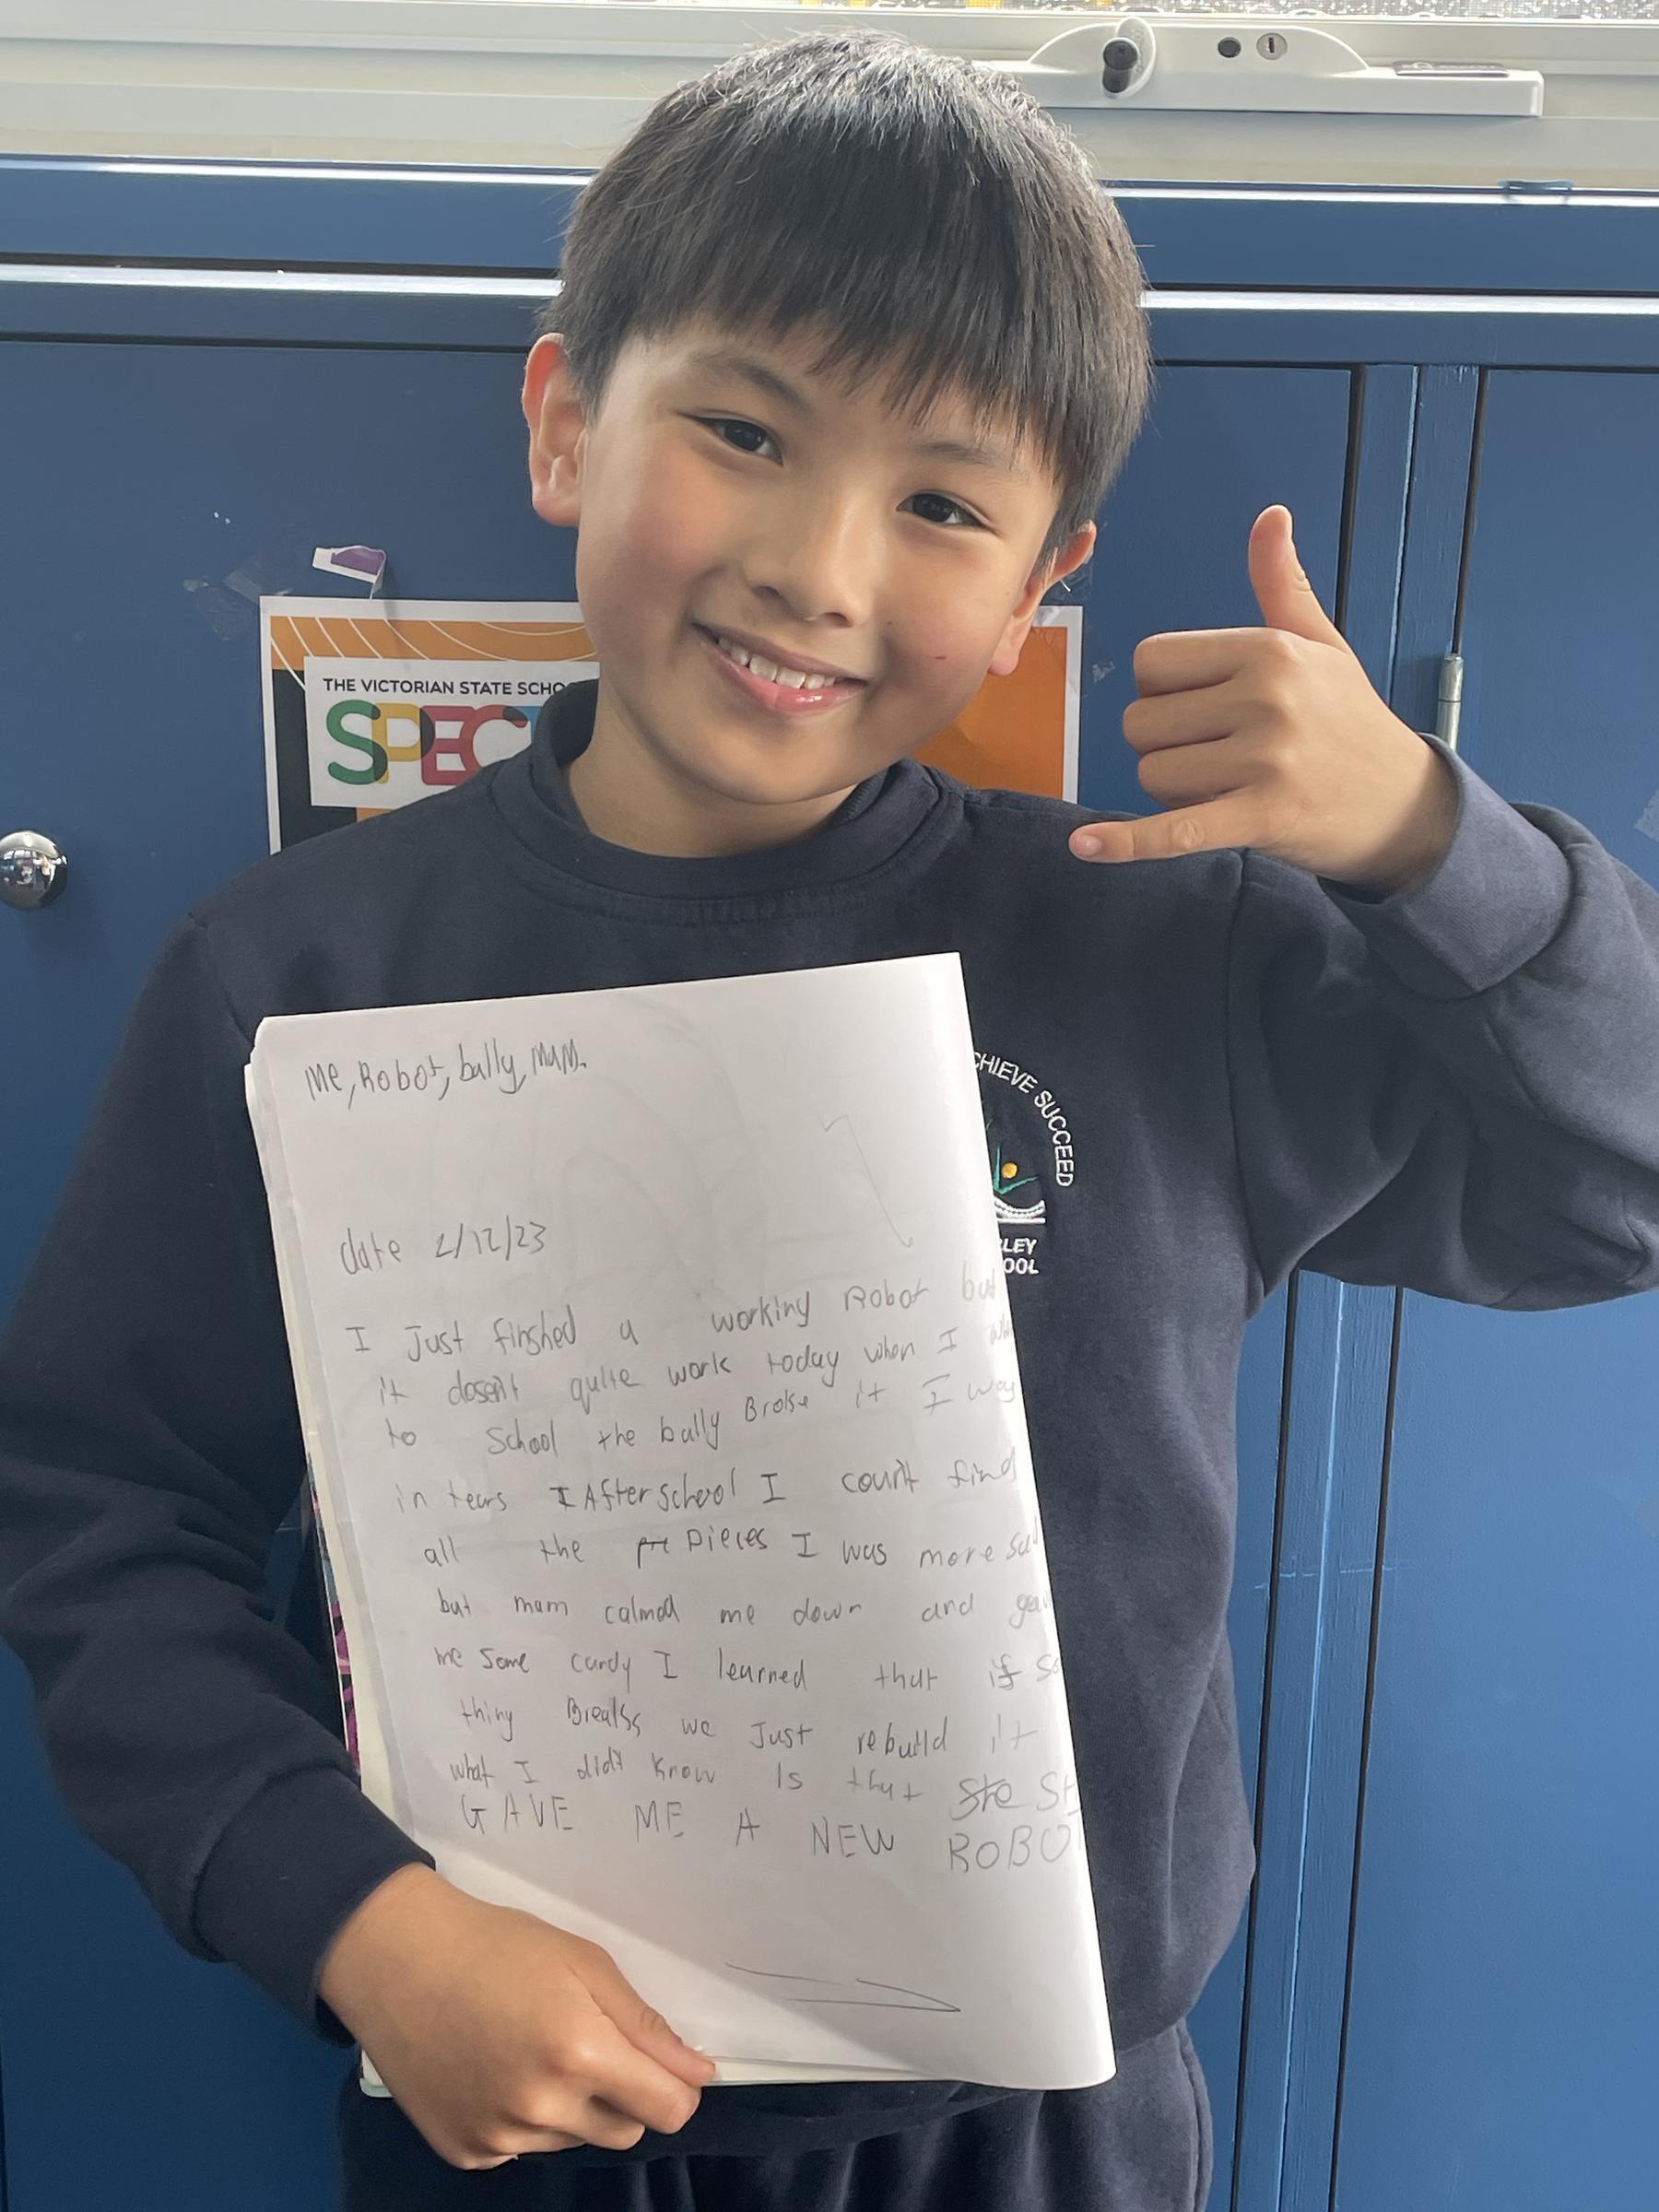 THE VICTORIAN STATE SCHO
SPEC
CHIEVE SUCCEED
LEY
OOL
Me, Robot, bully, Mum.
date 2/12/23
I Just finshed a working Robot but
it dosen't quite work today when I
to School the bully Broke it I was
in tears I After school I count find
all the pie Pieces I was more sad
but mum calmed me down and gav
me some candy I learned that if So
thing Breaks we Just rebuild it
what I didt know Is that Ste St
GAVE ME A NEW ROBO